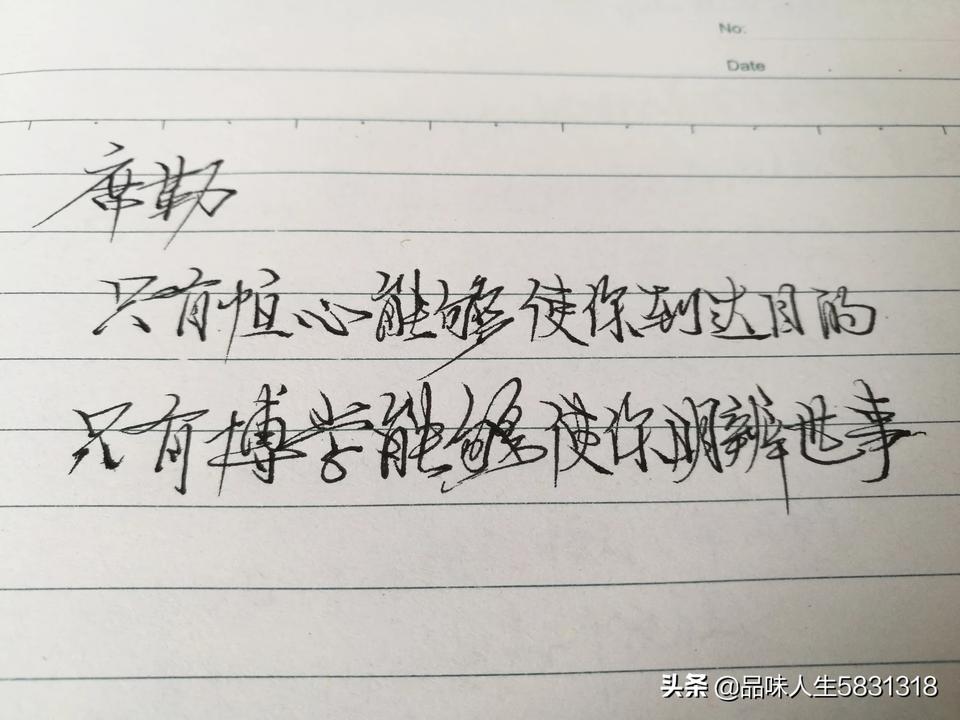 No:
Date
席勒
只有恒心能够使你到达目的
只有博学能够使你明辨世事
头条 @品味人生5831318